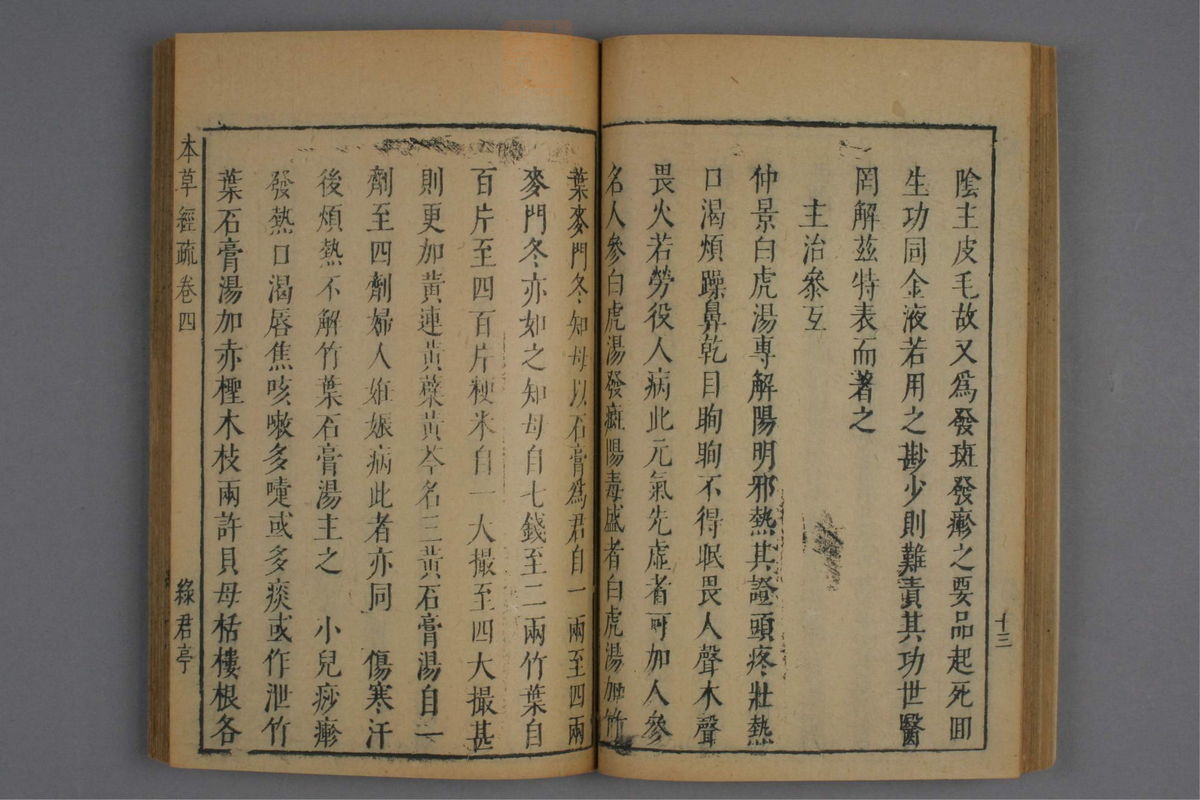 陰主皮毛故又爲發斑發瘮之要品起死回
生功同金液若用之尠少則難責其功世醫
罔解茲特表而著之
主治參互
仲景白虎湯專解陽明邪熱其證頭疼壯熱
口渴煩躁鼻乾目眴眴不得眠畏人聲木聲
畏火若勞役人病此元氣先虛者可加人參
名人參白虎湯發斑陽毒盛者白虎湯加竹
十三
葉麥門冬知母以石膏爲君自一兩至四兩
麥門冬亦如之知母自七錢至二兩竹葉自
百片至四百片粳米自一大撮至四大撮甚
則更加黃連黃蘗黃芩名三黃石膏湯自一
劑至四劑婦人姙娠病此者亦同 傷寒汗
後煩熱不解竹葉石膏湯主之 小兒痧瘮
發熱口渴唇焦咳嗽多嚏或多痰或作泄竹
葉石膏湯加赤檉木枝兩許貝母栝樓根各
本草經疏卷四 綠君亭